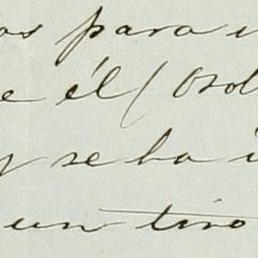 os para
e él (Osol
y se ha
un tiro